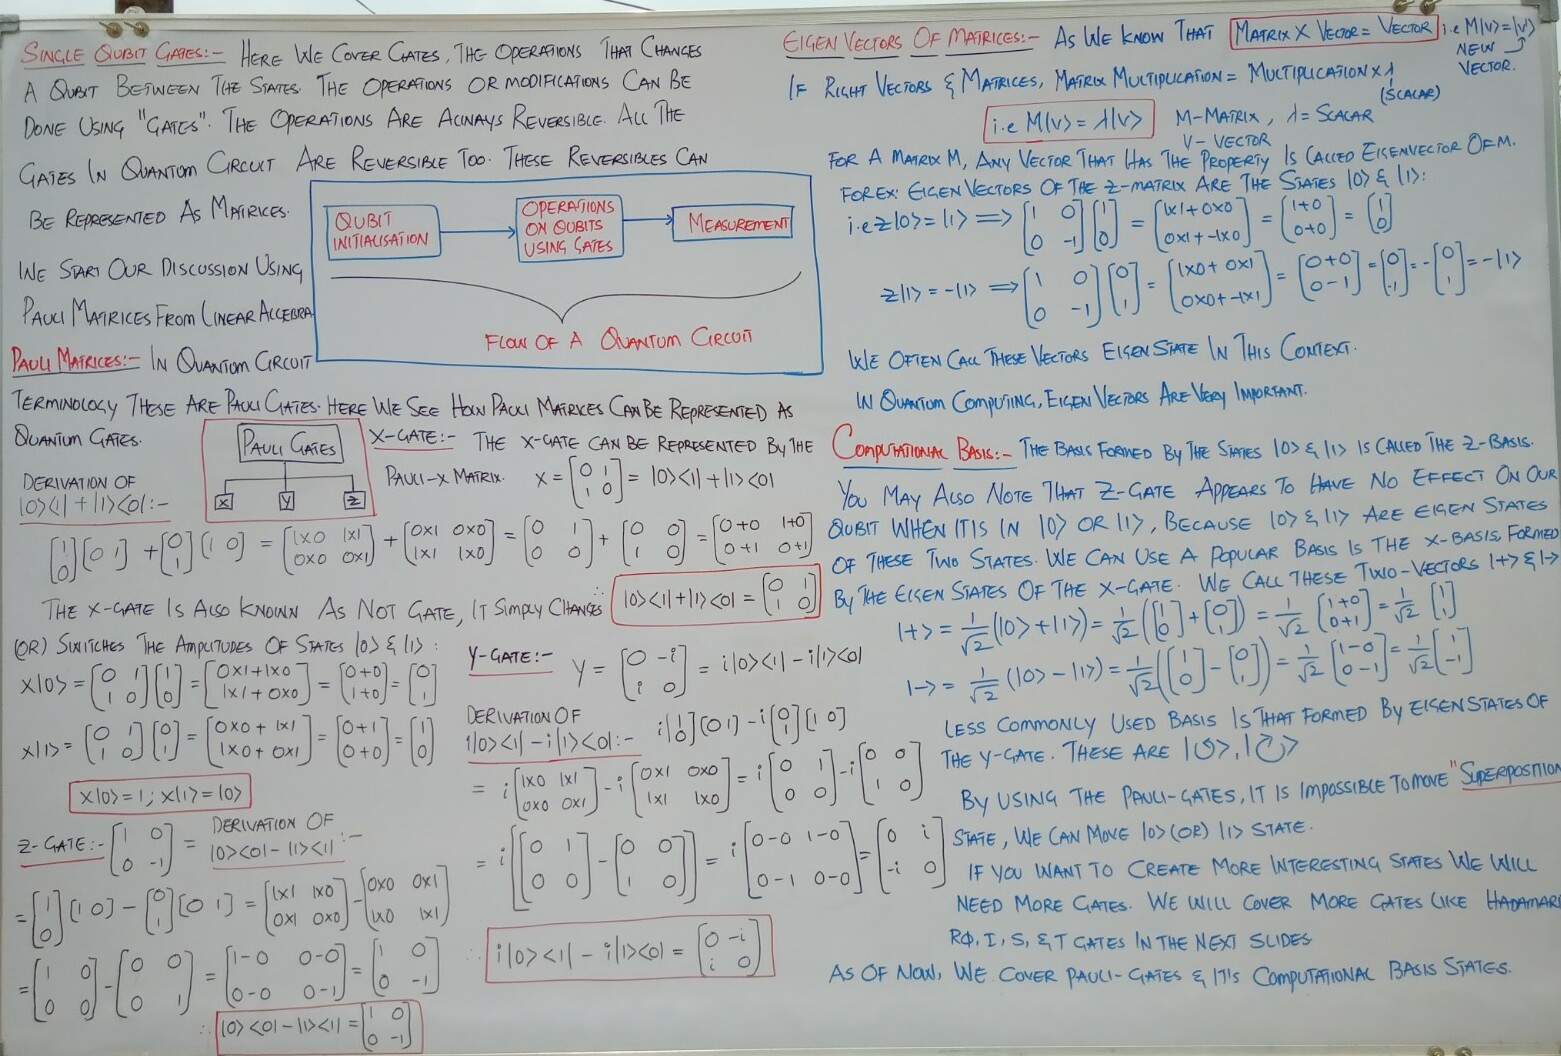 SINGLE QUBIT GATES:- HERE WE COVER GATES, THE OPERATIONS THAT CHANGES
A QUBIT BETWEEN THE STATES. THE OPERATIONS OR MODIFICATIONS CAN BE
DONE USING "GATES". THE OPERATIONS ARE ALWAYS REVERSIBLE. ALL THE
GATES IN QUANTUM CIRCUIT ARE REVERSIBLE TOO. THESE REVERSIBLES CAN
BE REPRESENTED AS MATRICES.
WE START OUR DISCUSSION USING
PAULI MATRICES FROM LINEAR ALGEBRA
QUBIT INITIALISATION
OPERATIONS ON QUBITS USING GATES
MEASUREMENT
FLOW OF A QUANTUM CIRCUIT
PAULI MATRICES:- IN QUANTUM CIRCUIT
TERMINOLOGY THESE ARE PAULI GATES. HERE WE SEE HOW PAULI MATRICES CAN BE REPRESENTED AS
QUANTUM GATES.
PAULI GATES
X Y Z
X-GATE:- THE X-GATE CAN BE REPRESENTED BY THE
PAULI-X MATRIX. X = [0 1; 1 0] = |0><1| + |1><0|
DERIVATION OF
|0><1| + |1><0|:-
[1; 0][0 1] + [0; 1][1 0] = [1x0 1x1; 0x0 0x1] + [0x1 0x0; 1x1 1x0] = [0 1; 0 0] + [0 0; 1 0] = [0+0 1+0; 0+1 0+1]
∴ |0><1| + |1><0| = [0 1; 1 0]
THE X-GATE IS ALSO KNOWN AS NOT GATE, IT SIMPLY CHANGES
(OR) SWITCHES THE AMPLITUDES OF STATES |0> & |1>:
X|0> = [0 1; 1 0][1; 0] = [0x1+1x0; 1x1+0x0] = [0+0; 1+0] = [0; 1]
X|1> = [0 1; 1 0][0; 1] = [0x0+1x1; 1x0+0x1] = [0+1; 0+0] = [1; 0]
X|0> = 1; X|1> = |0>
Z-GATE:- [1 0; 0 -1] = DERIVATION OF
|0><0| - |1><1| :-
= [1; 0][1 0] - [0; 1][0 1] = [1x1 1x0; 0x1 0x0] - [0x0 0x1; 1x0 1x1]
= [1 0; 0 0] - [0 0; 0 1] = [1-0 0-0; 0-0 0-1] = [1 0; 0 -1]
∴ |0><0| - |1><1| = [1 0; 0 -1]
Y-GATE:- Y = [0 -i; i 0] = i|0><1| - i|1><0|
DERIVATION OF
i|0><1| - i|1><0|:- i[1; 0][0 1] - i[0; 1][1 0]
= i[1x0 1x1; 0x0 0x1] - i[0x1 0x0; 1x1 1x0] = i[0 1; 0 0] - i[0 0; 1 0]
= i[[0 1; 0 0] - [0 0; 1 0]] = i[0-0 1-0; 0-1 0-0] = [0 i; -i 0]
∴ i|0><1| - i|1><0| = [0 -i; i 0]
EIGEN VECTORS OF MATRICES:- AS WE KNOW THAT MATRIX X VECTOR = VECTOR i.e M|v> = |v'>
NEW VECTOR.
IF RIGHT VECTORS & MATRICES, MATRIX MULTIPLICATION = MULTIPLICATION X λ
(SCALAR)
i.e M|v> = λ|v> M-MATRIX, λ = SCALAR
V-VECTOR
FOR A MATRIX M, ANY VECTOR THAT HAS THE PROPERTY IS CALLED EIGENVECTOR OF M.
FOR EX: EIGEN VECTORS OF THE Z-MATRIX ARE THE STATES |0> & |1>:
i.e Z|0> = |1> => [1 0; 0 -1][1; 0] = [1x1+0x0; 0x1+-1x0] = [1+0; 0+0] = [1; 0]
Z|1> = -|1> => [1 0; 0 -1][0; 1] = [1x0+0x1; 0x0+-1x1] = [0+0; 0-1] = [0; -1] = -[0; 1] = -|1>
WE OFTEN CALL THESE VECTORS EIGEN STATE IN THIS CONTEXT.
IN QUANTUM COMPUTING, EIGEN VECTORS ARE VERY IMPORTANT.
COMPUTATIONAL BASIS:- THE BASIS FORMED BY THE STATES |0> & |1> IS CALLED THE Z-BASIS.
YOU MAY ALSO NOTE THAT Z-GATE APPEARS TO HAVE NO EFFECT ON OUR
QUBIT WHEN IT IS IN |0> OR |1>, BECAUSE |0> & |1> ARE EIGEN STATES
OF THESE TWO STATES. WE CAN USE A POPULAR BASIS IS THE X-BASIS, FORMED
BY THE EIGEN STATES OF THE X-GATE. WE CALL THESE TWO-VECTORS |+> & |->
|+> = 1/√2 (|0> + |1>) = 1/√2 ([1; 0] + [0; 1]) = 1/√2 [1+0; 0+1] = 1/√2 [1; 1]
|-> = 1/√2 (|0> - |1>) = 1/√2 ([1; 0] - [0; 1]) = 1/√2 [1-0; 0-1] = 1/√2 [1; -1]
LESS COMMONLY USED BASIS IS THAT FORMED BY EIGEN STATES OF
THE Y-GATE. THESE ARE |↺>, |↻>
BY USING THE PAULI-GATES, IT IS IMPOSSIBLE TO MOVE "SUPERPOSITION
STATE, WE CAN MOVE |0> (OR) |1> STATE.
IF YOU WANT TO CREATE MORE INTERESTING STATES WE WILL
NEED MORE GATES. WE WILL COVER MORE GATES LIKE HADAMAR
Rφ, I, S, & T GATES IN THE NEXT SLIDES
AS OF NOW, WE COVER PAULI-GATES & IT'S COMPUTATIONAL BASIS STATES.